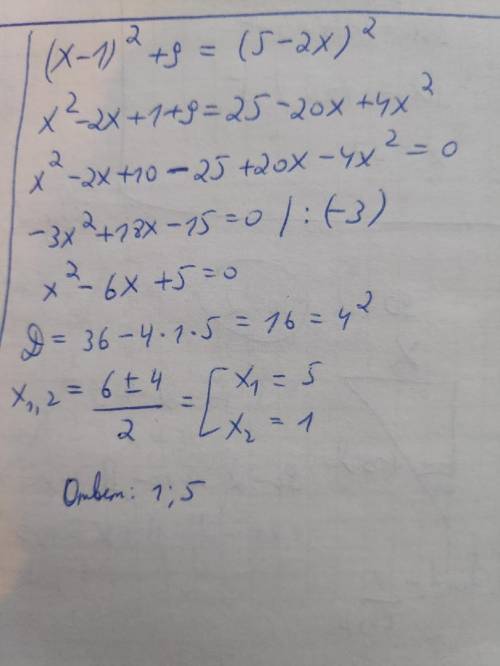 (x-1)² + 9 = (5-2x)²
x² - 2x + 1 + 9 = 25 - 20x + 4x²
x² - 2x + 10 - 25 + 20x - 4x² = 0
-3x² + 18x - 15 = 0 | : (-3)
x² - 6x + 5 = 0
D = 36 - 4·1·5 = 16 = 4²
x₁,₂ = (6 ± 4)/2 = [ x₁ = 5
x₂ = 1
Ответ: 1; 5